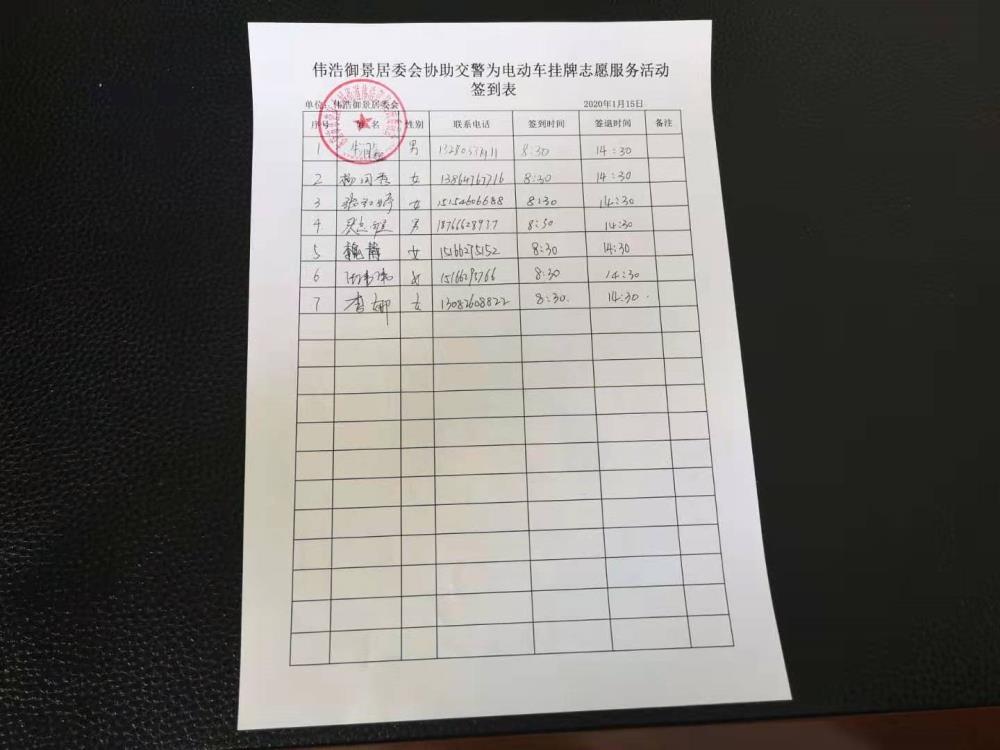 伟浩御景居委会协助交警为电动车挂牌志愿服务活动
签到表
单位：伟浩御景居委会 2020年1月15日
序号 姓名 性别 联系电话 签到时间 签退时间 备注
1 男 8:30 14:30
2 女 13864767716 8:30 14:30
3 女 15154606688 8:30 14:30
4 男 18766628937 8:30 14:30
5 魏静 女 15166295152 8:30 14:30
6 女 15166295766 8:30 14:30
7 李娜 女 13082608822 8:30. 14:30.